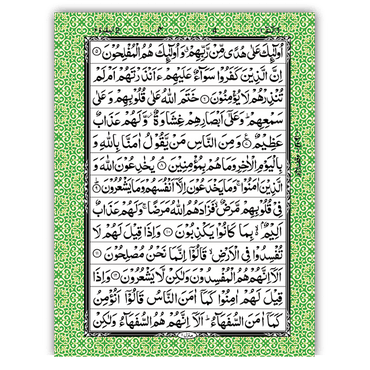 اُولٰٓئِكَ عَلٰى هُدًى مِّنْ رَّبِّهِمْ ۙ وَاُولٰٓئِكَ هُمُ الْمُفْلِحُوْنَ ۝
اِنَّ الَّذِيْنَ كَفَرُوْا سَوَآءٌ عَلَيْهِمْ ءَاَنْذَرْتَهُمْ اَمْ لَمْ
تُنْذِرْهُمْ لَا يُؤْمِنُوْنَ ۝ خَتَمَ اللّٰهُ عَلٰى قُلُوْبِهِمْ وَعَلٰى
سَمْعِهِمْ ؕ وَعَلٰٓى اَبْصَارِهِمْ غِشَاوَةٌ ؗ وَّلَهُمْ عَذَابٌ
عَظِيْمٌ ۝ وَمِنَ النَّاسِ مَنْ يَّقُوْلُ اٰمَنَّا بِاللّٰهِ وَ
بِالْيَوْمِ الْاٰخِرِ وَمَا هُمْ بِمُؤْمِنِيْنَ ۝ يُخٰدِعُوْنَ اللّٰهَ وَ
الَّذِيْنَ اٰمَنُوْا ۚ وَمَا يَخْدَعُوْنَ اِلَّاۤ اَنْفُسَهُمْ وَمَا يَشْعُرُوْنَ ۝
فِيْ قُلُوْبِهِمْ مَّرَضٌ ۙ فَزَادَهُمُ اللّٰهُ مَرَضًا ۚ وَلَهُمْ عَذَابٌ
اَلِيْمٌۢ ۙ بِمَا كَانُوْا يَكْذِبُوْنَ ۝ وَاِذَا قِيْلَ لَهُمْ لَا
تُفْسِدُوْا فِي الْاَرْضِ ۙ قَالُوْۤا اِنَّمَا نَحْنُ مُصْلِحُوْنَ ۝
اَلَاۤ اِنَّهُمْ هُمُ الْمُفْسِدُوْنَ وَلٰكِنْ لَّا يَشْعُرُوْنَ ۝ وَاِذَا
قِيْلَ لَهُمْ اٰمِنُوْا كَمَاۤ اٰمَنَ النَّاسُ قَالُوْۤا اَنُؤْمِنُ
كَمَاۤ اٰمَنَ السُّفَهَآءُ ؕ اَلَاۤ اِنَّهُمْ هُمُ السُّفَهَآءُ وَلٰكِنْ